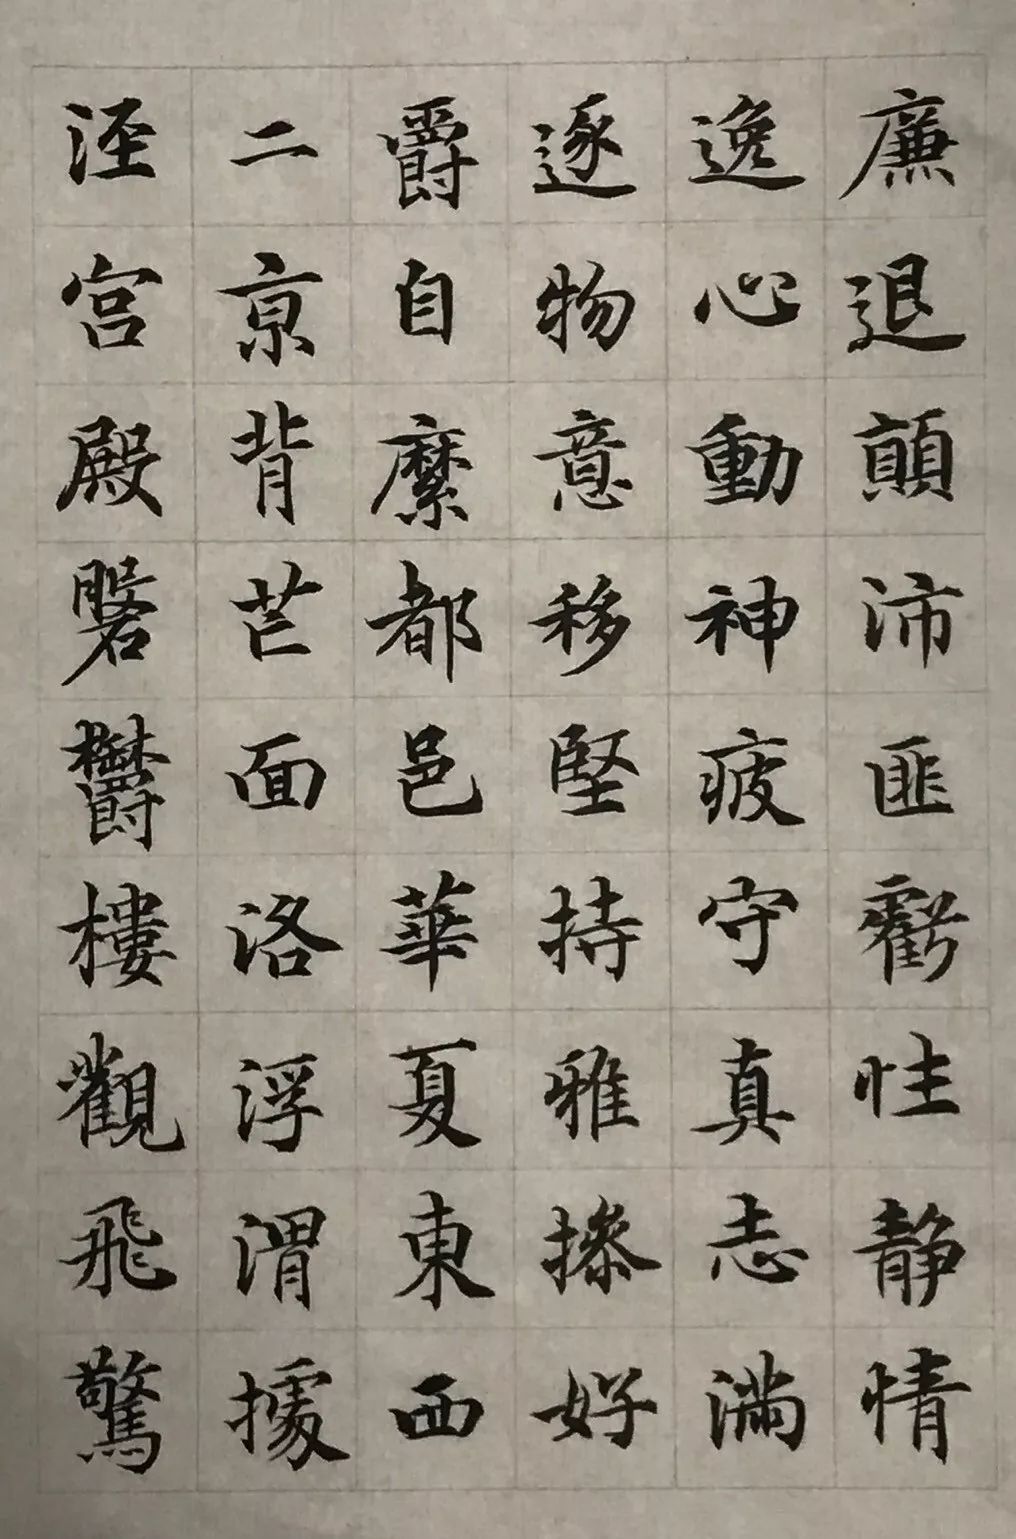 廉退顛沛匪虧性静情
逸心動神疲守真志滿
逐物意移堅持雅操好
爵自縻都邑華夏東西
二京背芒面洛浮渭據
涇宮殿磐鬱樓觀飛驚